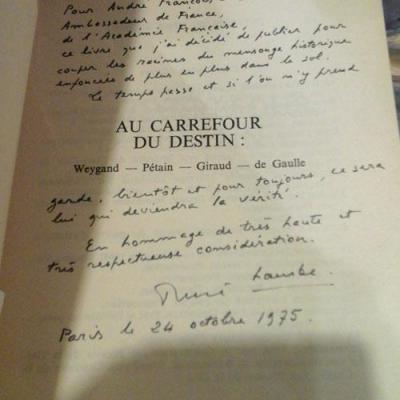 Pour André François,
Ambassadeur de France,
de l'Académie Française,
ce livre que j'ai décidé de publier pour
couper les racines du mensonge historique
enfoncées de plus en plus dans le sol.
Le temps passe et si l'on n'y prend
AU CARREFOUR
DU DESTIN :
Weygand — Pétain — Giraud — de Gaulle
garde, bientôt et pour toujours, ce sera
lui qui deviendra la vérité.
En hommage de très haute et
très respectueuse considération.
René
Paris le 24 octobre 1975.